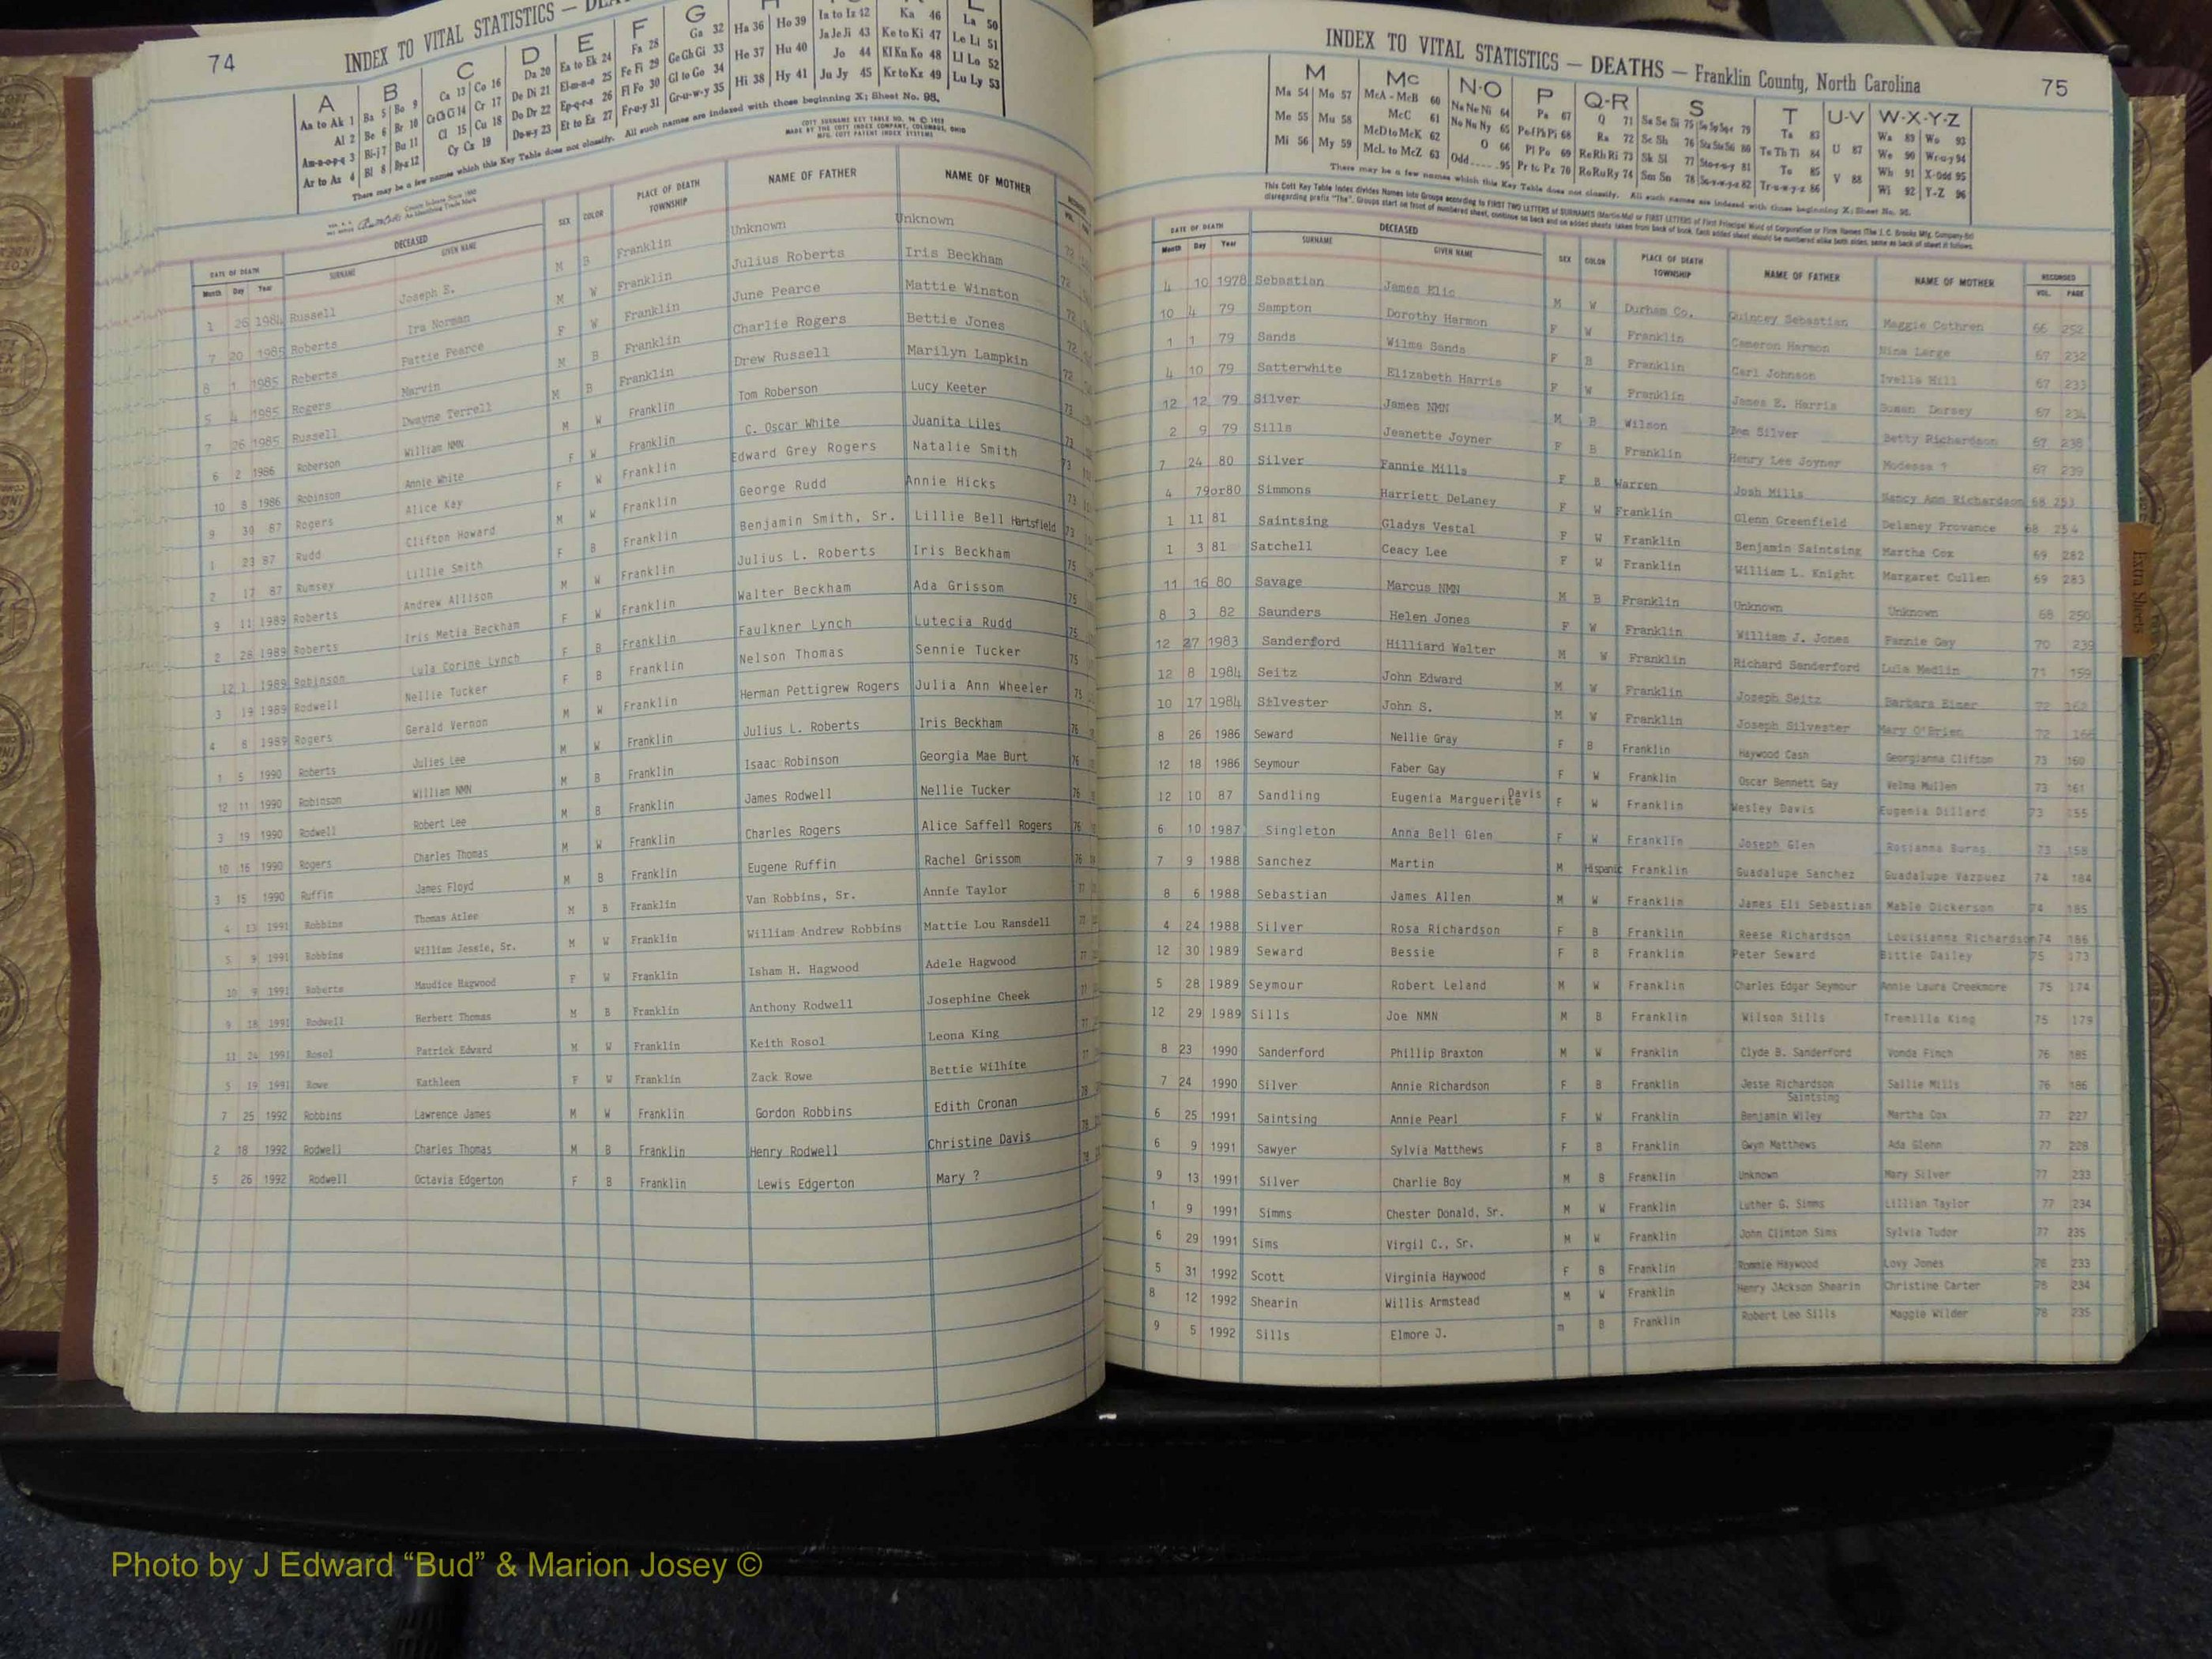 74
INDEX TO VITAL STATISTICS —
A B C D E F G
Aa to Ak 1 Ba 5 Bo 9 Ca 13 Co 16 Da 20 Ea to Ek 24 Fa 28 Ga 32 Ha 36 Ho 39 Ia to Iz 42 Ka 46 La 50
Al 2 Be 6 Br 10 Ce Ch Ci 14 Cr 17 De Di 21 El-m-n-o 25 Fe Fi 29 Ge Gh Gi 33 He 37 Hu 40 Ja Je Ji 43 Ke to Ki 47 Le Li 51
Am-n-o-p-q 3 Bi-j 7 Bu 11 Cl 15 Cu 18 Do Dr 22 Ep-q-r-s 26 Fl Fo 30 Gl to Go 34 Hi 38 Hy 41 Jo 44 Kl Kn Ko 48 Ll Lo 52
Ar to Az 4 Bl 8 By-z 12 Cy Cz 19 Du-w-y 23 Et to Ez 27 Fr-u-y 31 Gr-u-w-y 35 Ju Jy 45 Kr to Kz 49 Lu Ly 53
There may be a few names which this Key Table does not classify. All such names are indexed with those beginning X; Sheet No. 98.
COTT SURNAME KEY TABLE NO.
MADE BY THE COTT INDEX COMPANY, COLUMBUS, OHIO
MFG. COTT PATENT INDEX SYSTEMS
DATE OF DEATH DECEASED SEX COLOR PLACE OF DEATH NAME OF FATHER NAME OF MOTHER
Month Day Year SURNAME GIVEN NAME TOWNSHIP VOL.
1 26 1984 Russell Joseph E. M B Franklin Unknown Unknown 72
7 20 1985 Roberts Ira Norman M W Franklin Julius Roberts Iris Beckham 72
8 1 1985 Roberts Pattie Pearce F W Franklin June Pearce Mattie Winston 72
5 4 1985 Rogers Marvin M B Franklin Charlie Rogers Bettie Jones 72
7 26 1985 Russell Dwayne Terrell M B Franklin Drew Russell Marilyn Lampkin 72
6 2 1986 Roberson William NMN M W Franklin Tom Roberson Lucy Keeter 73
10 8 1986 Robinson Annie White F W Franklin C. Oscar White Juanita Liles 73
9 30 87 Rogers Alice Kay F W Franklin Edward Grey Rogers Natalie Smith 73
1 23 87 Rudd Clifton Howard M W Franklin George Rudd Annie Hicks 73
2 17 87 Rumsey Lillie Smith F B Franklin Benjamin Smith, Sr. Lillie Bell Hartsfield 73
9 11 1989 Roberts Andrew Allison M W Franklin Julius L. Roberts Iris Beckham 75
2 28 1989 Roberts Iris Metia Beckham F W Franklin Walter Beckham Ada Grissom 75
12 1 1989 Robinson Lula Corine Lynch F B Franklin Faulkner Lynch Lutecia Rudd 75
3 19 1989 Rodwell Nellie Tucker F B Franklin Nelson Thomas Sennie Tucker 75
4 8 1989 Rogers Gerald Vernon M W Franklin Herman Pettigrew Rogers Julia Ann Wheeler 75
1 5 1990 Roberts Julies Lee M W Franklin Julius L. Roberts Iris Beckham 76
12 11 1990 Robinson William NMN M B Franklin Isaac Robinson Georgia Mae Burt 76
3 19 1990 Rodwell Robert Lee M B Franklin James Rodwell Nellie Tucker 76
10 16 1990 Rogers Charles Thomas M W Franklin Charles Rogers Alice Saffell Rogers 76
3 15 1990 Ruffin James Floyd M B Franklin Eugene Ruffin Rachel Grissom 76
4 13 1991 Robbins Thomas Atlee M B Franklin Van Robbins, Sr. Annie Taylor 77
5 9 1991 Robbins William Jessie, Sr. M W Franklin William Andrew Robbins Mattie Lou Ransdell 77
10 9 1991 Roberts Maudice Hagwood F W Franklin Isham H. Hagwood Adele Hagwood 77
9 18 1991 Rodwell Herbert Thomas M B Franklin Anthony Rodwell Josephine Cheek 77
11 24 1991 Rosol Patrick Edward M W Franklin Keith Rosol Leona King 77
5 19 1991 Rowe Kathleen F W Franklin Zack Rowe Bettie Wilhite 77
7 25 1992 Robbins Lawrence James M W Franklin Gordon Robbins Edith Cronan 78
2 18 1992 Rodwell Charles Thomas M B Franklin Henry Rodwell Christine Davis 78
5 26 1992 Rodwell Octavia Edgerton F B Franklin Lewis Edgerton Mary ? 78
INDEX TO VITAL STATISTICS — DEATHS — Franklin County, North Carolina
75
M Mc N-O P Q-R S T U-V W-X-Y-Z
Ma 54 Mo 57 McA - McB 60 Na Ne Ni 64 Pa 67 Q 71 Sa Se Si 75 Ta 83 Wa 89 Wo 93
Me 55 Mu 58 McC 61 No Nu Ny 65 Pe Pf Ph Pi 68 Ra 72 Sc Sh 76 Te Th Ti 84 U 87 We 90 Wr-u-y 94
Mi 56 My 59 McD to McK 62 O 66 Pl Po 69 Re Rh Ri 73 Sk Sl 77 To 85 Wh 91 X-Odd 95
McL to McZ 63 Odd 95 Pr to Pz 70 Ro Ru Ry 74 Sm Sn 78 Tr-u-w-y-z 86 V 88 Wi 92 Y-Z 96
There may be a few names which this Key Table does not classify. All such names are indexed with those beginning X; Sheet No. 98.
This Cott Key Table Index divides Names into Groups according to FIRST TWO LETTERS of SURNAMES (Martin-Ma) or FIRST LETTERS of First Principal Word of Corporation or Firm Names (The J. C. Brooks Mfg. Company-Br)
disregarding prefix "The". Groups start on front of numbered sheet, continue on back and on added sheets taken from back of book. Each added sheet should be numbered alike both sides, same as back of sheet it follows.
DATE OF DEATH DECEASED SEX COLOR PLACE OF DEATH NAME OF FATHER NAME OF MOTHER RECORDED
Month Day Year SURNAME GIVEN NAME TOWNSHIP VOL. PAGE
4 10 1978 Sebastian James Elic M W Durham Co. Quincey Sebastian Maggie Cothren 66 252
10 4 79 Sampton Dorothy Harmon F W Franklin Cameron Harmon Nina Large 67 232
1 1 79 Sands Wilma Sands F B Franklin Carl Johnson Ivella Hill 67 233
4 10 79 Satterwhite Elizabeth Harris F W Franklin James E. Harris Susan Dorsey 67 234
12 12 79 Silver James NMN M B Wilson Silver Betty Richardson 67 238
2 9 79 Sills Jeanette Joyner F B Franklin Henry Lee Joyner Modessa ? 67 239
7 24 80 Silver Fannie Mills F B Warren Josh Mills Nancy Ann Richardson 68 253
4 79or80 Simmons Harriett DeLaney F W Franklin Glenn Greenfield Delaney Provance 68 254
1 11 81 Saintsing Gladys Vestal F W Franklin Benjamin Saintsing Martha Cox 69 282
1 3 81 Satchell Ceacy Lee F W Franklin William L. Knight Margaret Cullen 69 283
11 16 80 Savage Marcus NMN M B Franklin Unknown Unknown 68 250
8 3 82 Saunders Helen Jones F W Franklin William J. Jones Fannie Gay 70 239
12 27 1983 Sanderford Hilliard Walter M W Franklin Richard Sanderford Lula Medlin 71 159
12 8 1984 Seitz John Edward M W Franklin Joseph Seitz Barbara 72 162
10 17 1984 Silvester John S. M W Franklin Joseph Silvester Mary O'Brien 72 166
8 26 1986 Seward Nellie Gray F B Franklin Haywood Cash Georgianna Clifton 73 160
12 18 1986 Seymour Faber Gay F W Franklin Oscar Bennett Gay Velma Mullen 73 161
12 10 87 Sandling Eugenia Marguerite Davis F W Franklin Wesley Davis Eugenia Dillard 73 155
6 10 1987 Singleton Anna Bell Glen F W Franklin Joseph Glen Rosianna Burns 73 158
7 9 1988 Sanchez Martin M Hispanic Franklin Guadalupe Sanchez Guadalupe Vazquez 74 184
8 6 1988 Sebastian James Allen M W Franklin James Eli Sebastian Mable Dickerson 74 185
4 24 1988 Silver Rosa Richardson F B Franklin Reese Richardson Louisianna Richardson 74 186
12 30 1989 Seward Bessie F B Franklin Peter Seward Bittie Dailey 75 173
5 28 1989 Seymour Robert Leland M W Franklin Charles Edgar Seymour Annie Laura Creekmore 75 174
12 29 1989 Sills Joe NMN M B Franklin Wilson Sills Tremilla King 75 179
8 23 1990 Sanderford Phillip Braxton M W Franklin Clyde B. Sanderford Vonda Finch 76 185
7 24 1990 Silver Annie Richardson F B Franklin Jesse Richardson Sallie Mills 76 186
6 25 1991 Saintsing Annie Pearl F W Franklin Benjamin Wiley Saintsing Martha Cox 77 227
6 9 1991 Sawyer Sylvia Matthews F B Franklin Gwyn Matthews Ada Glenn 77 228
9 13 1991 Silver Charlie Boy M B Franklin Unknown Mary Silver 77 233
1 9 1991 Simms Chester Donald, Sr. M W Franklin Luther G. Simms Lillian Taylor 77 234
6 29 1991 Sims Virgil C., Sr. M W Franklin John Clinton Sims Sylvia Tudor 77 235
5 31 1992 Scott Virginia Haywood F B Franklin Rommie Haywood Lovy Jones 78 233
8 12 1992 Shearin Willis Armstead M W Franklin Henry JAckson Shearin Christine Carter 78 234
9 5 1992 Sills Elmore J. m B Franklin Robert Lee Sills Maggie Wilder 78 235
Extra Sheets
Photo by J Edward “Bud” & Marion Josey ©